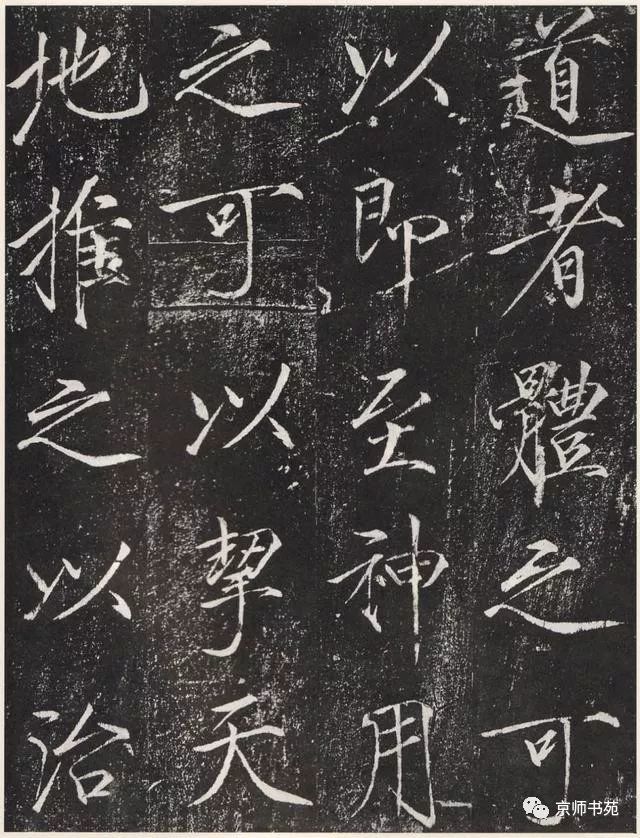 道者體之可
以即至神用
之可以挈天
地推之以治
京师书苑